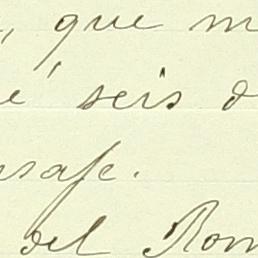 , que m
é seis d
nsaje.
del Rom